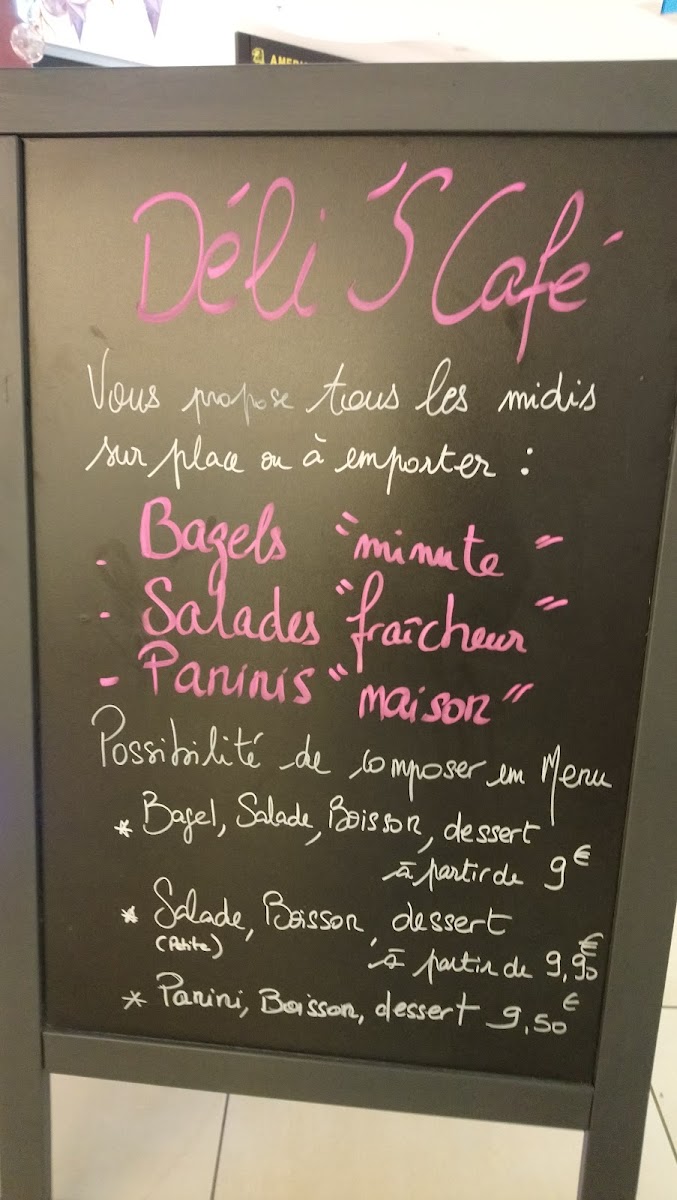 AMERI
Déli'S Café
Vous propose tous les midis
sur place ou à emporter :
- Bagels "minute"
- Salades "fraîcheur"
- Paninis "maison"
Possibilité de composer en Menu
* Bagel, Salade, Boisson, dessert
à partir de 9€
* Salade, Boisson, dessert
(Petite)
à partir de 9,90€
* Panini, Boisson, dessert 9,50€